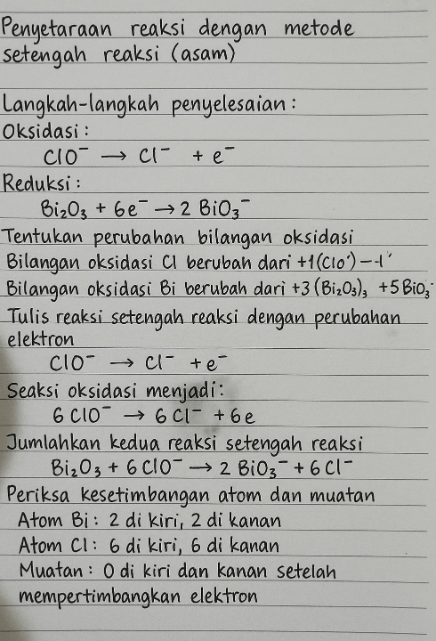 Penyetaraan reaksi dengan metode
setengah reaksi (asam)
Langkah-langkah penyelesaian :
Oksidasi :
ClO⁻ → Cl⁻ + e⁻
Reduksi :
Bi₂O₃ + 6e⁻ → 2 BiO₃⁻
Tentukan perubahan bilangan oksidasi
Bilangan oksidasi Cl berubah dari +1 (ClO⁻) – -1
Bilangan oksidasi Bi berubah dari +3 (Bi₂O₃), +5 BiO₃⁻
Tulis reaksi setengah reaksi dengan perubahan
elektron
ClO⁻ → Cl⁻ + e⁻
Seaksi oksidasi menjadi :
6 ClO⁻ → 6 Cl⁻ + 6e
Jumlahkan kedua reaksi setengah reaksi
Bi₂O₃ + 6 ClO⁻ → 2 BiO₃⁻ + 6 Cl⁻
Periksa kesetimbangan atom dan muatan
Atom Bi : 2 di kiri, 2 di kanan
Atom Cl : 6 di kiri, 6 di kanan
Muatan : 0 di kiri dan kanan setelah
mempertimbangkan elektron